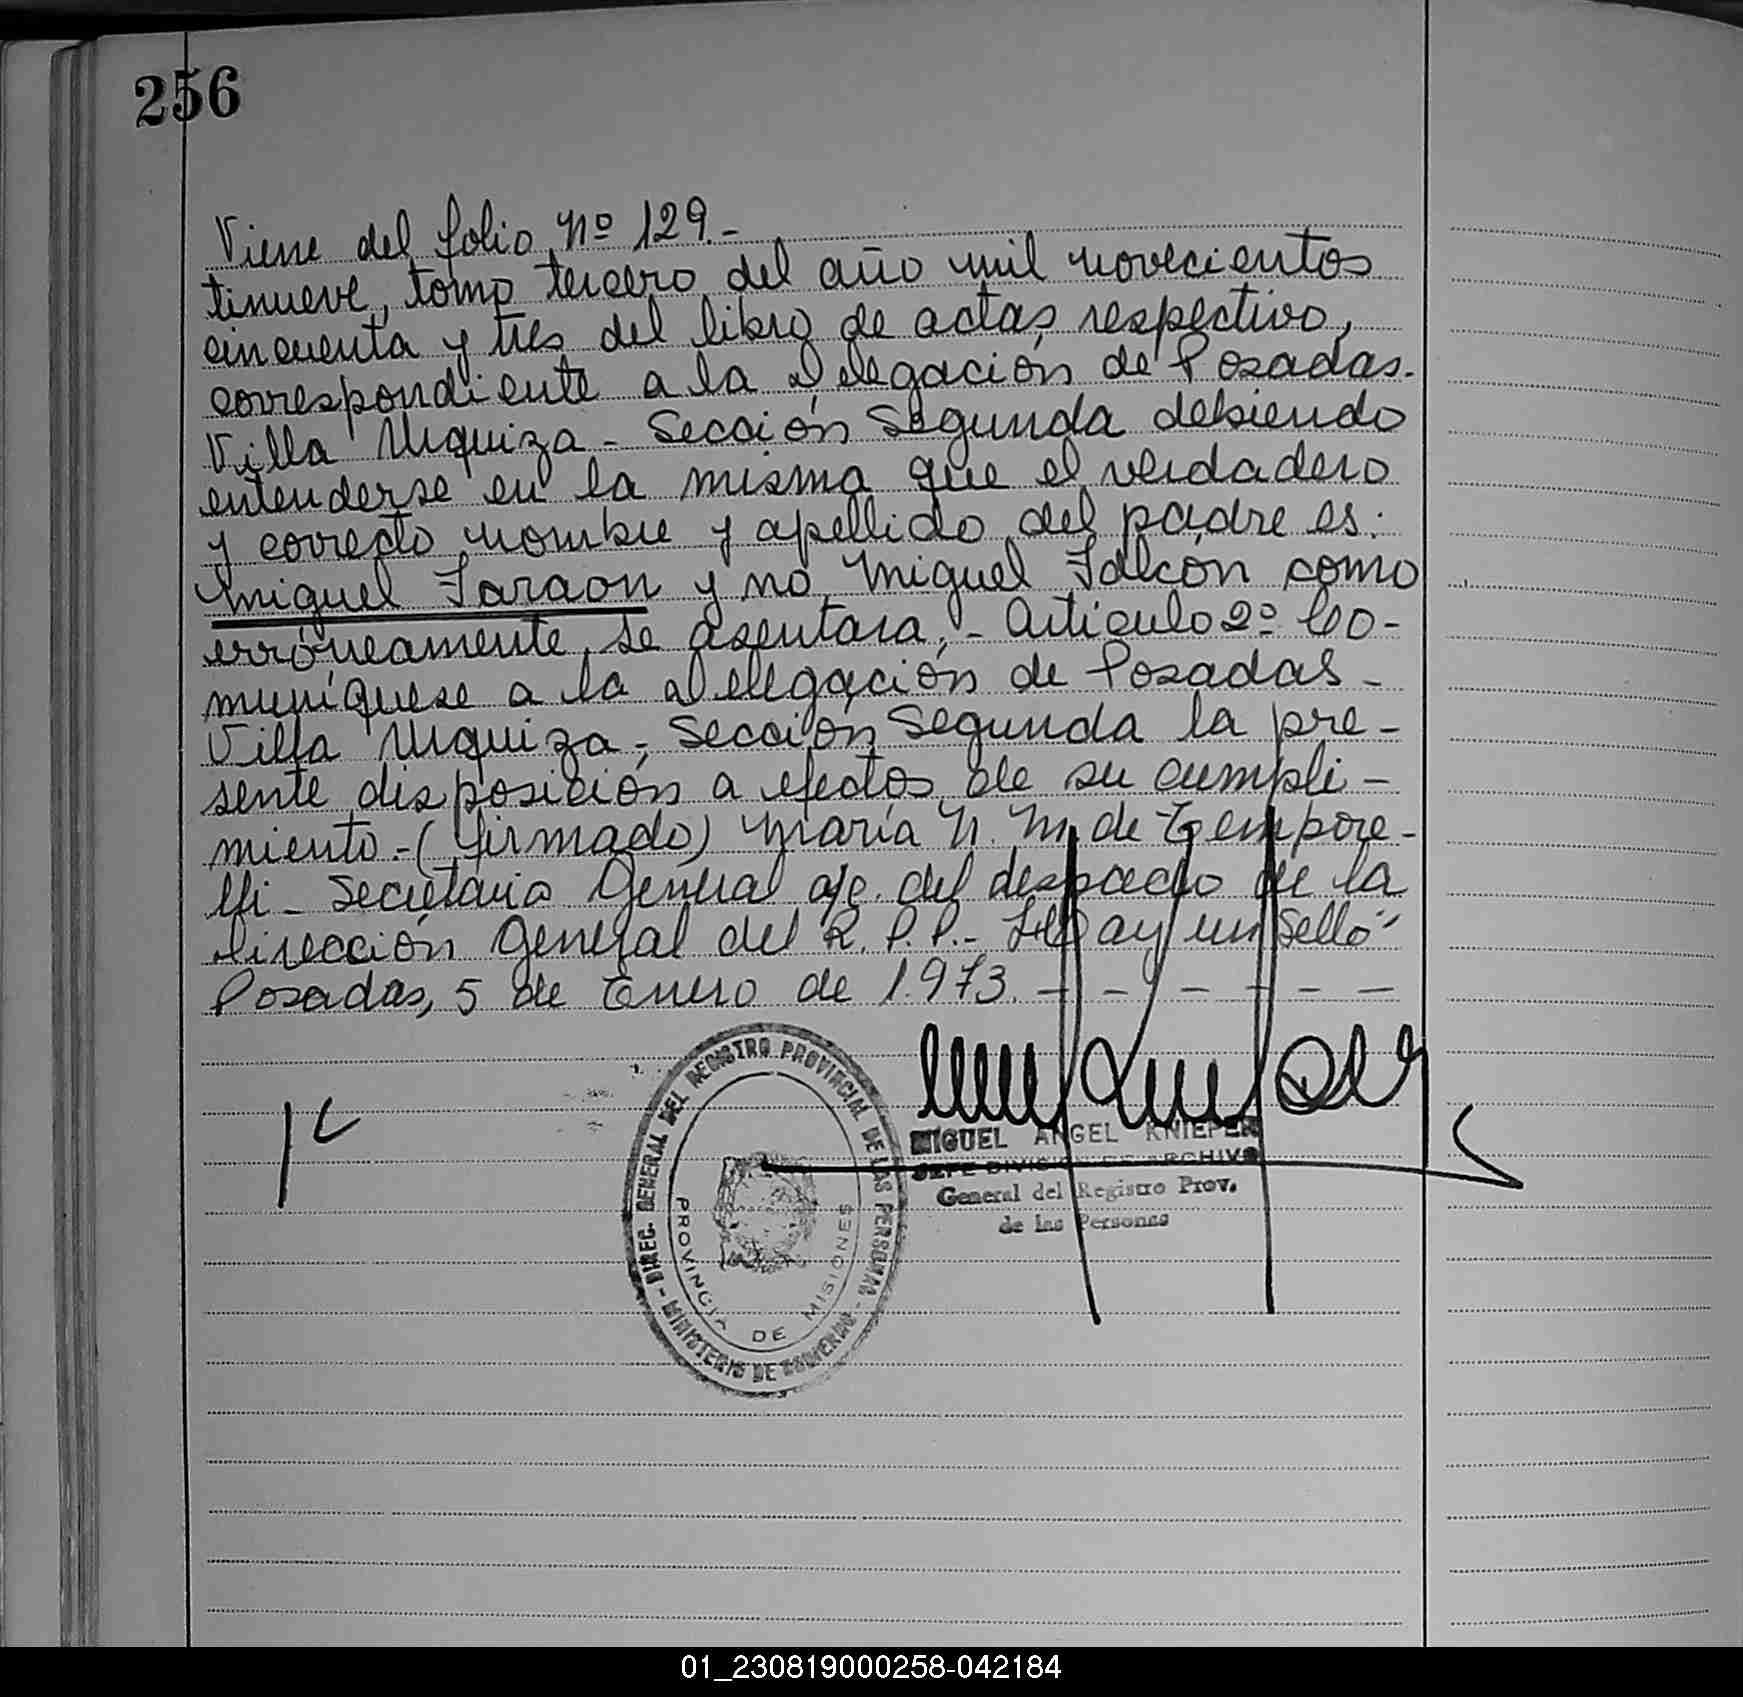 256
Viene del folio Nº 129.-
tinueve, tomo tercero del año mil novecientos
cincuenta y tres del libro de actas respectivo,
correspondiente a la Delegación de Posadas.
Villa Urquiza - Sección Segunda debiendo
entenderse en la misma que el verdadero
y correcto nombre y apellido del padre es:
Miguel Faraon y no Miguel Falcón como
erróneamente se asentara.- Artículo 2º Co-
muníquese a la Delegación de Posadas -
Villa Urquiza - Sección Segunda la pre-
sente disposición a efectos de su cumpli-
miento.- (firmado) María N. M. de Tempore-
lli - Secretaria General a/c. del despacho de la
Dirección General del R. P. P.- Hay un sello"
Posadas, 5 de Enero de 1.973. - - - - - - -
DIREC. GENERAL DEL REGISTRO PROVINCIAL DE LAS PERSONAS
- MINISTERIO DE GOBIERNO -
PROVINCIA DE MISIONES
MIGUEL ANGEL KNIEPER
JEFE DIVISION DE ARCHIVO
General del Registro Prov.
de las Personas
01_230819000258-042184